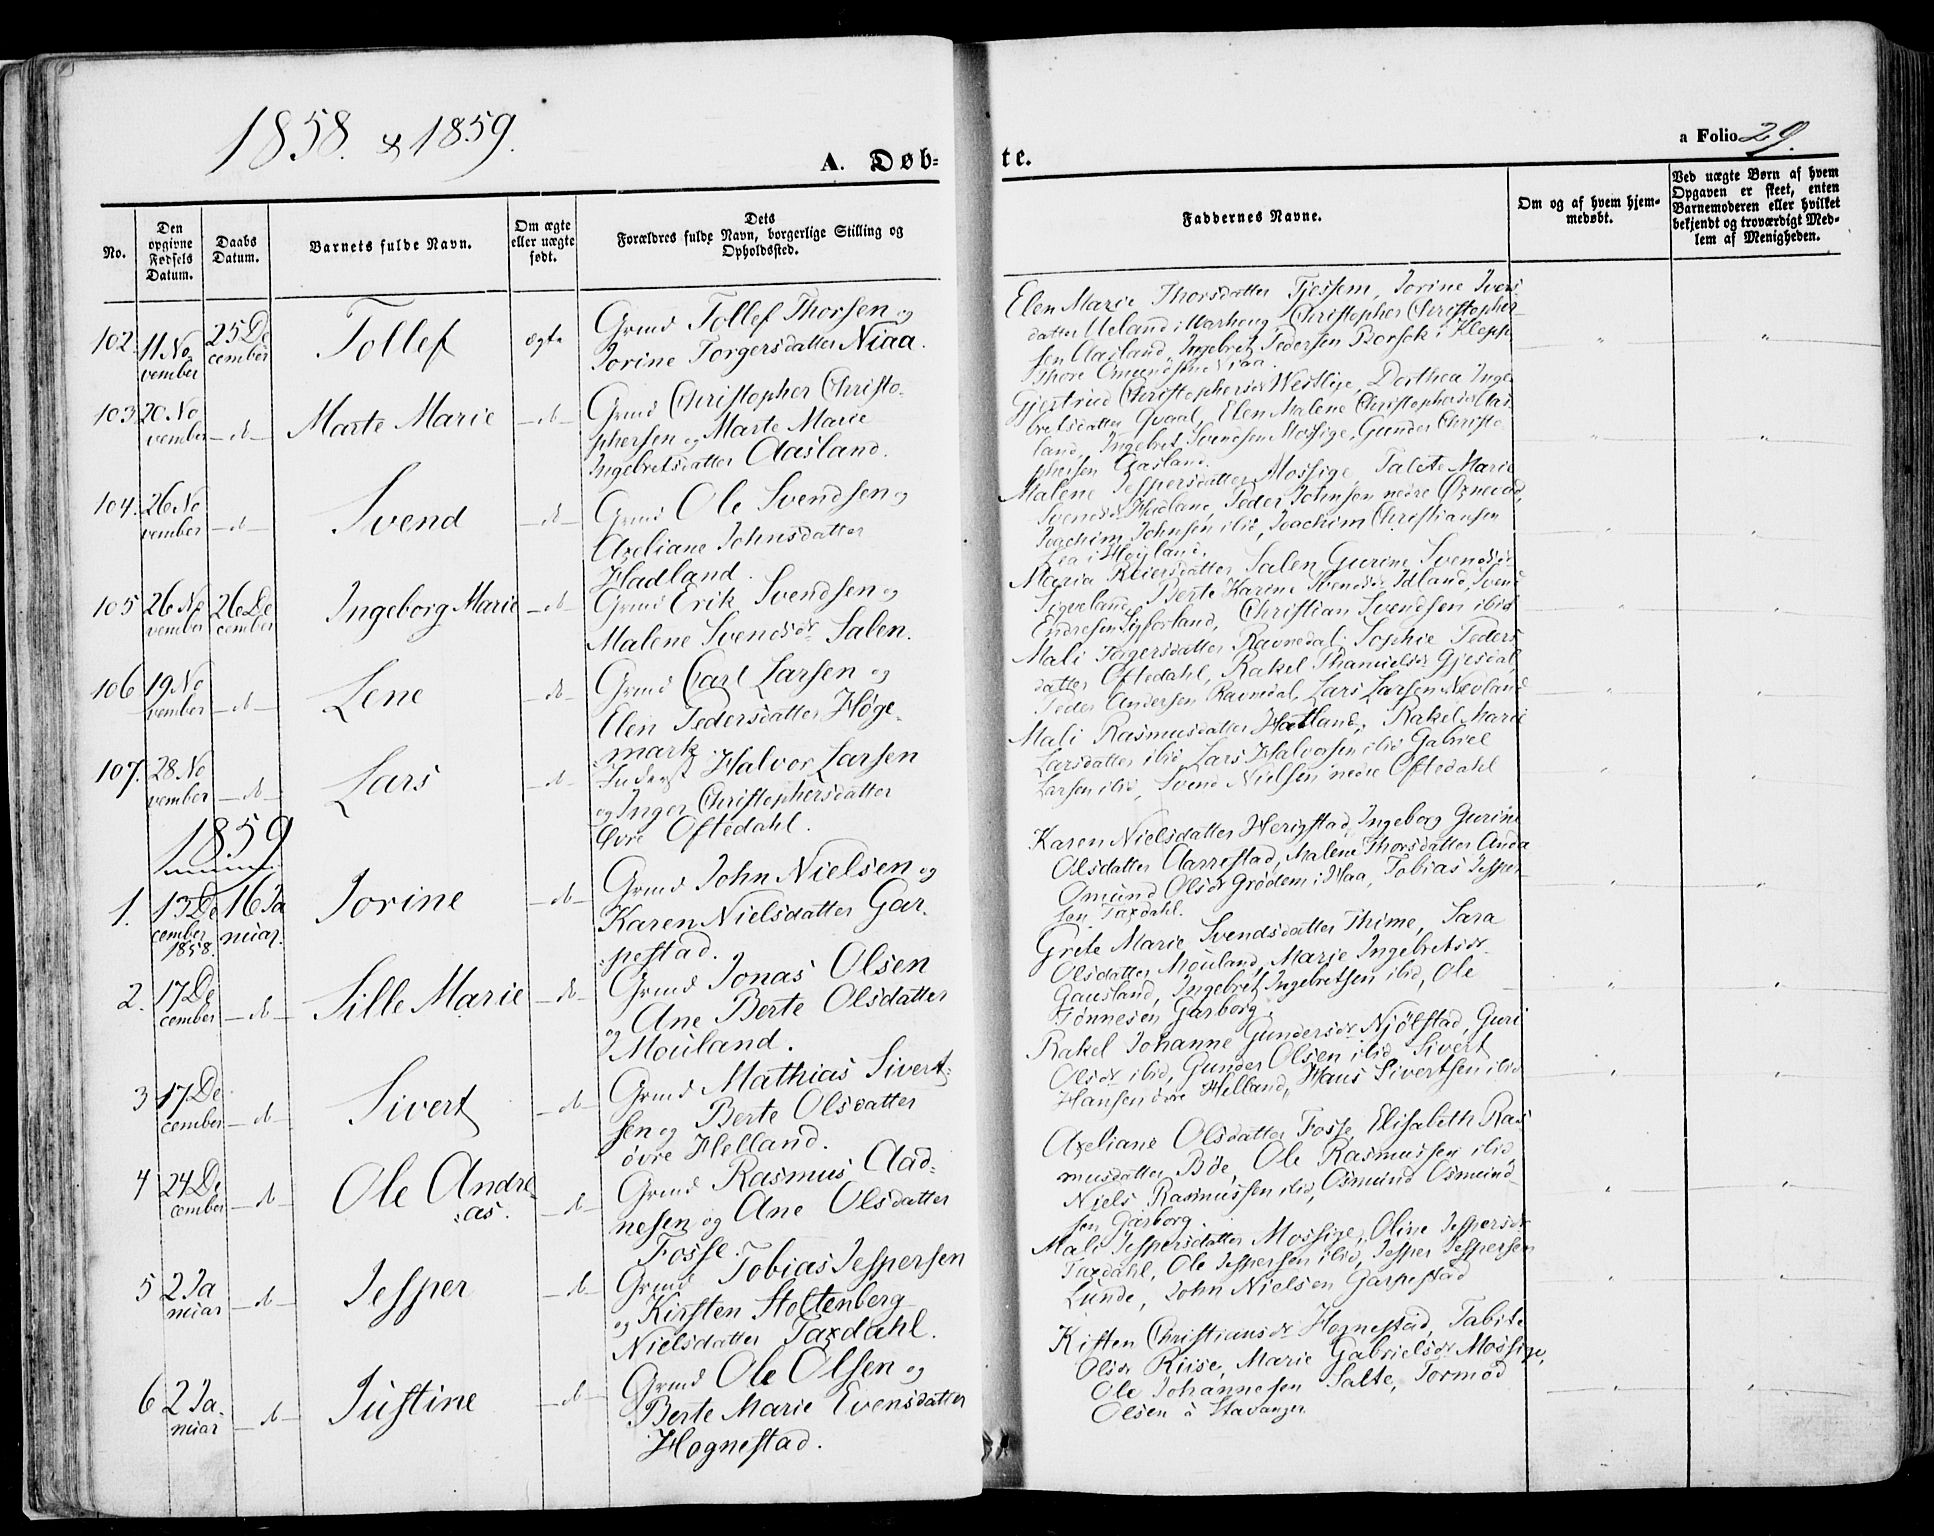 1858. & 1859.
A. Døb-
te.
a Folio 29.
No.
Den opgivne Fødsels Datum.
Daabs Datum.
Barnets fulde Navn.
Om ægte eller uægte født.
Dets Forældres fulde Navn, borgerlige Stilling og Opholdssted.
Faddernes Navne.
Om og af hvem hjem-
medøbt.
Ved uægte Børn af hvem
Opgaven er skeet, enten
Barnemoderen eller hvilket
bekjendt og troværdigt Med-
lem af Menigheden.
102. 11 No
vember
25 De
cember
Tollef
ægte
Grmd Tollef Thorsen og
Jorine Torgersdatter Niaa.
Elen Marie Thorsdatter Tjessem, Jorine Ivers
datter Ueland i Warhoug, Christopher Christopher
sen Aasland, Ingebret Pedersen Borsek i Klepp
Thore Omundsen Niaa.
103 20 No
vember
-d-
Marte Marie
-d-
Grmd Christopher Christo-
phersen og Marte Marie
Ingebretsdatter Aasland.
Gjertrud Christophersdr Westlye, Dorthea Inge
bretsdatter Qvaal, Elen Malene Christophersdr Aas
land, Ingebret Svendsen Mossige, Gunder Christo
phersen Aasland.
104. 26 No
vember
-d-
Svend
-d-
Grmd Ole Svendsen og
Axeliane Johnsdatter
Hadland.
Malene Jespersdatter Mossige, Talete Marie
Svendsdr Hadland, Peder Johnsen nedre Øxnevad,
Joachim Johnsen ibid, Joachim Christiansen
Lea i Høyland.
105 26 No
vember
26 De
cember
Ingeborg Marie
-d-
Grmd Erik Svendsen og
Malene Svendsdr Salen.
Maria Reiersdatter Salen Gurine Svendsdr
Sigveland, Berte Karine Svendsdr Idland, Svend
Endresen, Christian Svendsen ibid
106 19 No
vember
-d-
Lene
-d-
Grmd Carl Larsen og
Elen Pedersdatter Høge-
mark
Mali Torgersdatter Ravnedal, Sophie Peders
datter Oftedahl, Rakel Gjesdal
Peder Andersen Ravndal, Lars Larsen Nevland
107. 28 No
vember
-d-
Lars
-d-
Inderst Halvor Larsen
og Inger Christophersdatter
Øvre Oftedahl.
Mali Rasmusdatter Hatland, Rakel Marie
Larsdatter ibid, Lars Halvorsen ibid Gabriel
Larsen ibid, Svend Nielsen nedre Oftedahl
1859
1. 13 De
cember
1858.
16 Ja
nuar.
Jorine
-d-
Grmd John Nielsen og
Karen Nielsdatter Gar-
pestad.
Karen Nielsdatter Herigstad, Ingeborg Gurine
Olsdatter Aarrestad, Malene Thorsdatter Anda
Omund Olsdr Grødem i Haa, Tobias Jesper-
sen Taxdahl.
2. 17 De
cember
-d-
Sille Marie
-d-
Grmd Jonas Olsen
og Ane Berte Olsdatter
Mouland.
Grete Marie Svendsdatter Thime, Sara
Olsdatter Mouland, Marie Ingebretsdr
Gausland, Ingebret Ingebretsen ibid, Ole
Tønnesen Garborg.
3 17 De
cember
-d-
Sivert
-d-
Grmd Mathias Sivert-
sen og Berte Olsdatter
øvre Helland.
Rakel Johanne Gundersdr Njølstad, Guri
Olsdr ibid, Gunder Olsen ibid, Sivert
Hansen øvre Helland, Hans Sivertsen ibid
4 24 De
cember
-d-
Ole Andre-
as.
-d-
Grmd Rasmus Aad-
nesen og Ane Olsdatter
Fosse.
Axeliane Olsdatter Fosse, Elisabeth Ras
musdatter Bøe, Ole Rasmussen ibid,
Niels Rasmussen ibid, Osmund Osmund-
sen Garborg.
5 2 Ja
nuar
-d-
Jesper
-d-
Grmd Tobias Jespersen
og Kirsten Stoltenberg
Nielsdatter Taxdahl.
Mali Jespersdatter Mossige, Oline Jespersdr
Taxdahl, Ole Jespersen ibid, Jesper Jespersen
Lunde, John Nielsen Garpestad
6 2 Ja-
nuar
-d-
Justine
-d-
Grmd Ole Olsen og
Berte Marie Evensdatter
Hognestad.
Kisten Christiansdr Hognestad, Tabite
Olsdr Riise, Marie Gabrielsdr Mossige,
Ole Johannesen Salte, Tormod
Olsen à Stavanger